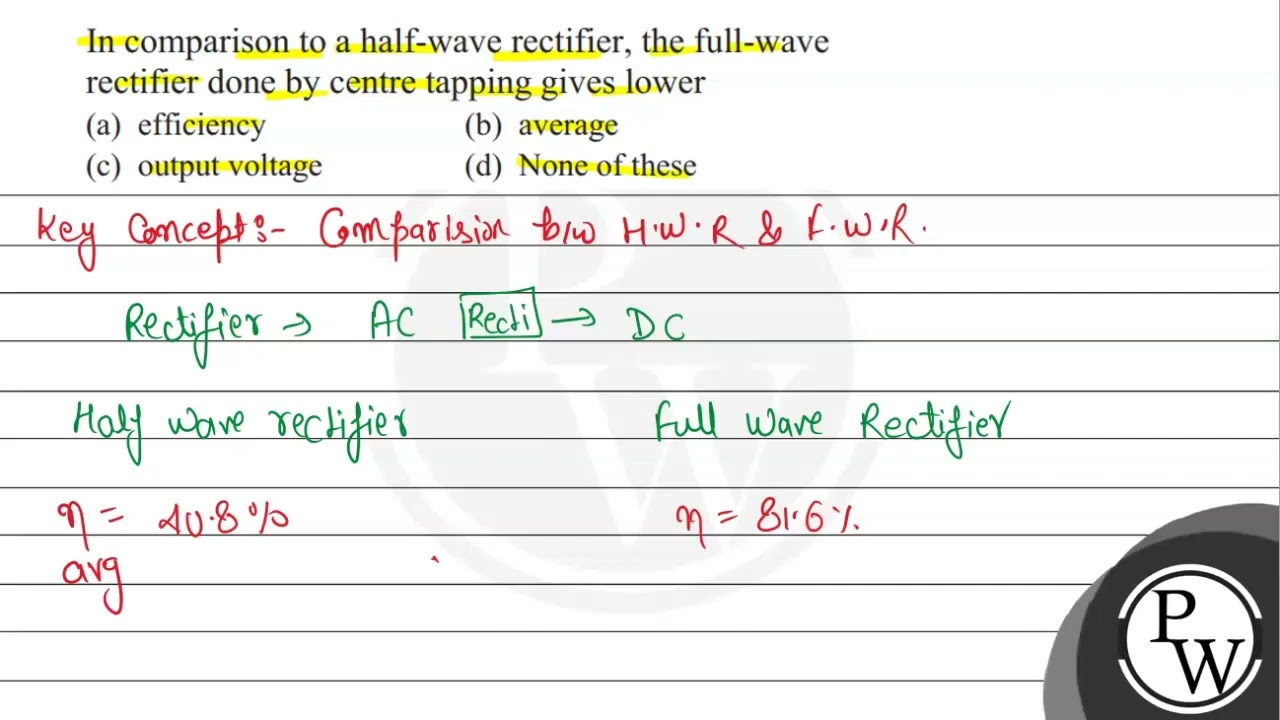 In comparison to a half-wave rectifier, the full-wave
rectifier done by centre tapping gives lower
(a) efficiency (b) average
(c) output voltage (d) None of these
Key Concept:- Comparision b/w H.W.R & F.W.R.
Rectifier → AC Recti → DC
Half wave rectifier Full Wave Rectifier
η = 40.8% η = 81.6%
avg
P
W